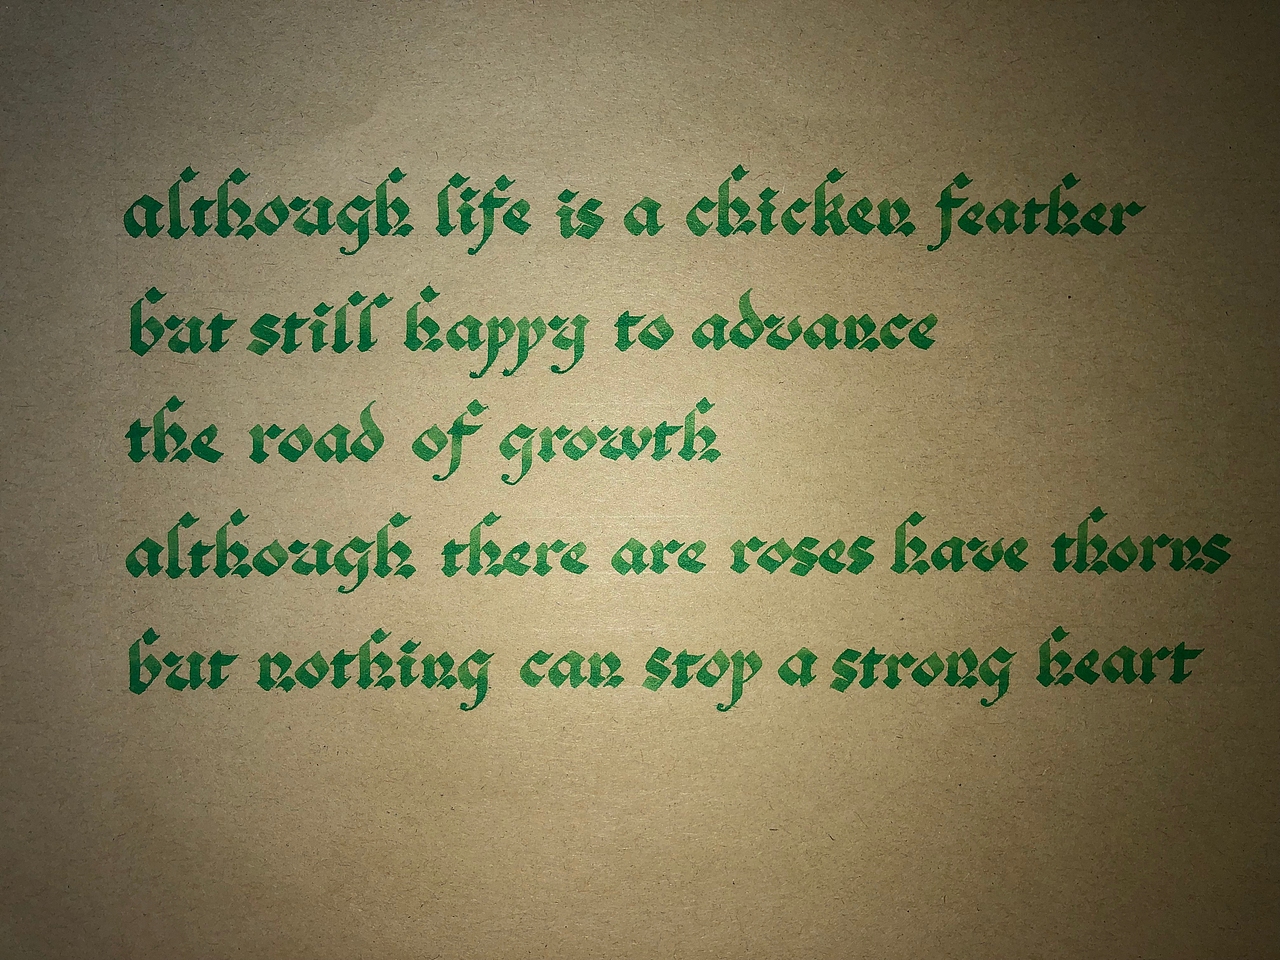 although life is a chicken feather
but still happy to advance
the road of growth
although there are roses have thorns
but nothing can stop a strong heart